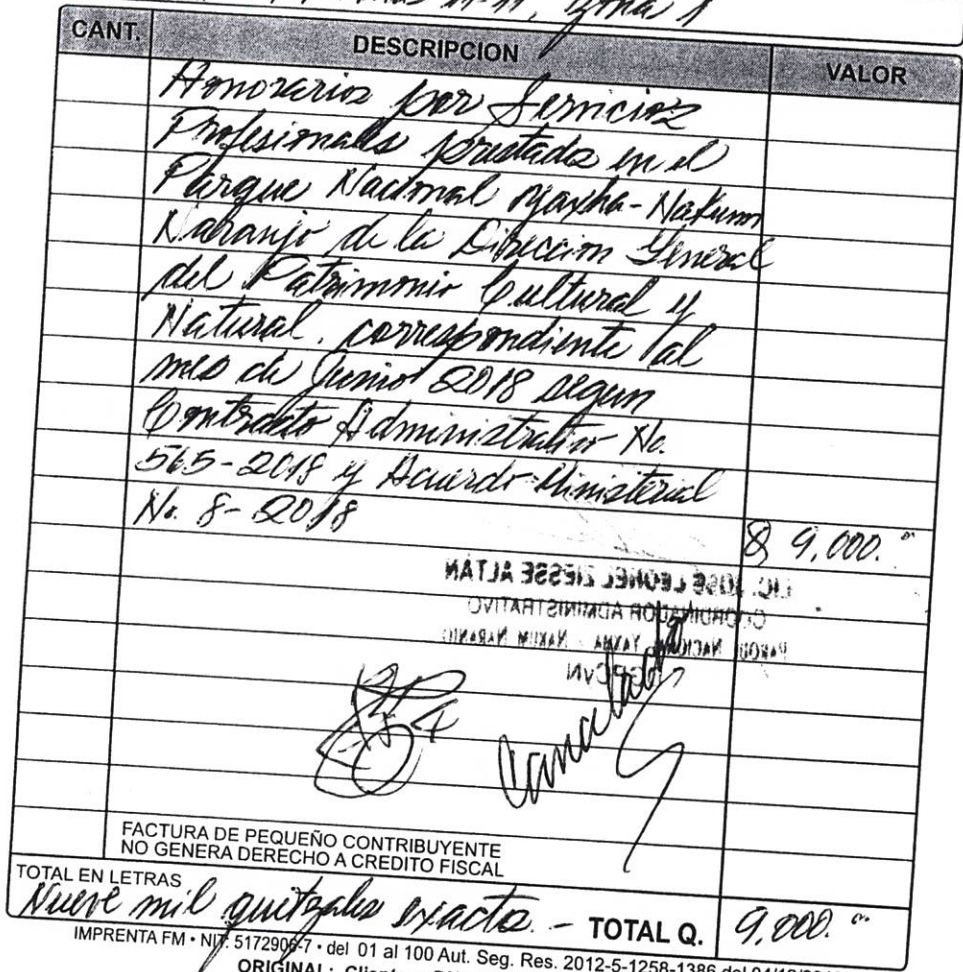 11-11, Zona 1
CANT. DESCRIPCION VALOR
Honorarios por Servicios
Profesionales prestados en el
Parque Nacional Yaxha-Nakum
Naranjo de la Direccion General
del Patrimonio Cultural y
Natural, correspondiente al
mes de Junio 2018 segun
Contrato Administrativo No.
565-2018 y Acuerdo Ministerial
No. 8-2018
Q 9,000.°°
LIC. JOSÉ LEONEL ZIESSE ALTÁN
COORDINADOR ADMINISTRATIVO
PARQUE NACIONAL YAXHA - NAKUM NARANJO
DGPCyN
Cancelado
FACTURA DE PEQUEÑO CONTRIBUYENTE
NO GENERA DERECHO A CREDITO FISCAL
TOTAL EN LETRAS
Nueve mil quetzales exactos. - TOTAL Q. 9,000.°°
IMPRENTA FM • NIT: 5172906-7 • del 01 al 100 Aut. Seg. Res. 2012-5-1258-1386 del
ORIGINAL: Cliente